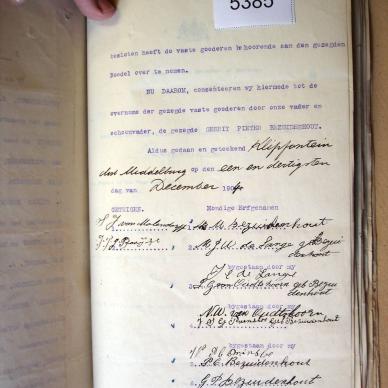 5385
besloten heeft de vaste goederen behoorende aan den gezegden
Boedel over te nemen.
NU DAAROM, consenteeren wy hiermede tot de
overname der gezegde vaste goederen door onze vader en
schoonvader, de gezegde GERRIT PIETER BEZUIDENHOUT.
Aldus gedaan en geteekend Klipfontein
dist Middelburg op den een en dertigsten
dag van December 190
GETUIGEN. Mondige Erfgenamen
1. M. M. Bezuidenhout
2. M. J. W. De Lange geb Bezui
denhout
bygestaan door my
J. C. de Lange
3. van Oudtshoorn geb Bezui
denhout
bygestaan door my
N. W. van Oudtshoorn
4. Prinsloo geb Bezuidenhout
bygestaan door my
5. P. C. Bezuidenhout
6. G. P. Bezuidenhout